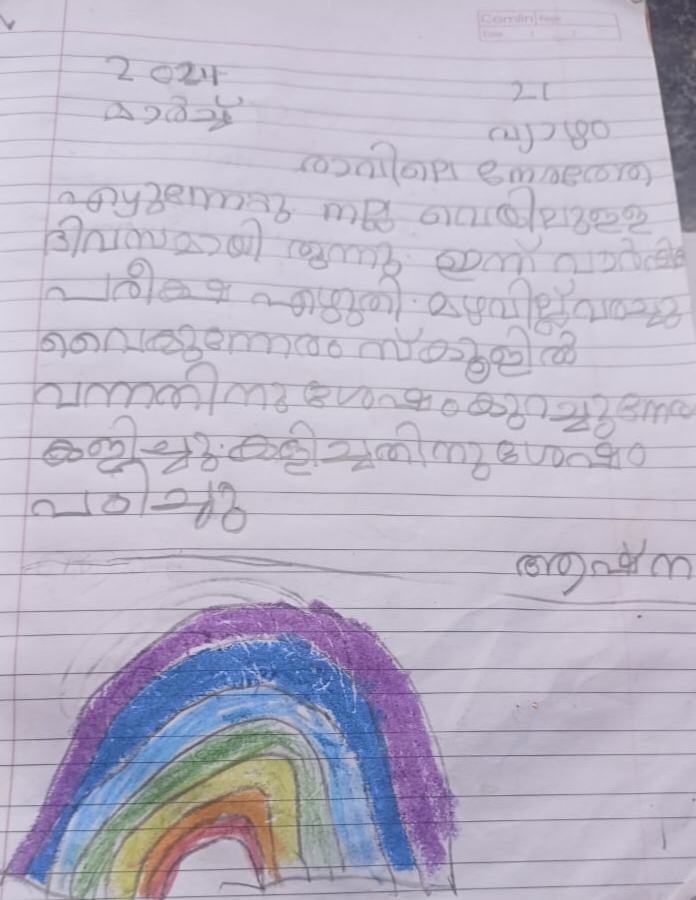 Camlin Page
Date / /
2024 21
മാർച്ച് വ്യാഴം
രാവിലെ നേരത്തെ
എഴുന്നേറ്റു നല്ല വെയിലുള്ള
ദിവസമായി രുന്നു. ഇന്ന് വാർഷിക
പരീക്ഷ എഴുതി. മഴവില്ല് വരച്ചു
വൈകുന്നേരം സ്കൂളിൽ
വന്നതിനു ശേഷം കുറച്ചുനേരം
കളിച്ചു. കളിച്ചതിനു ശേഷം
പഠിച്ചു